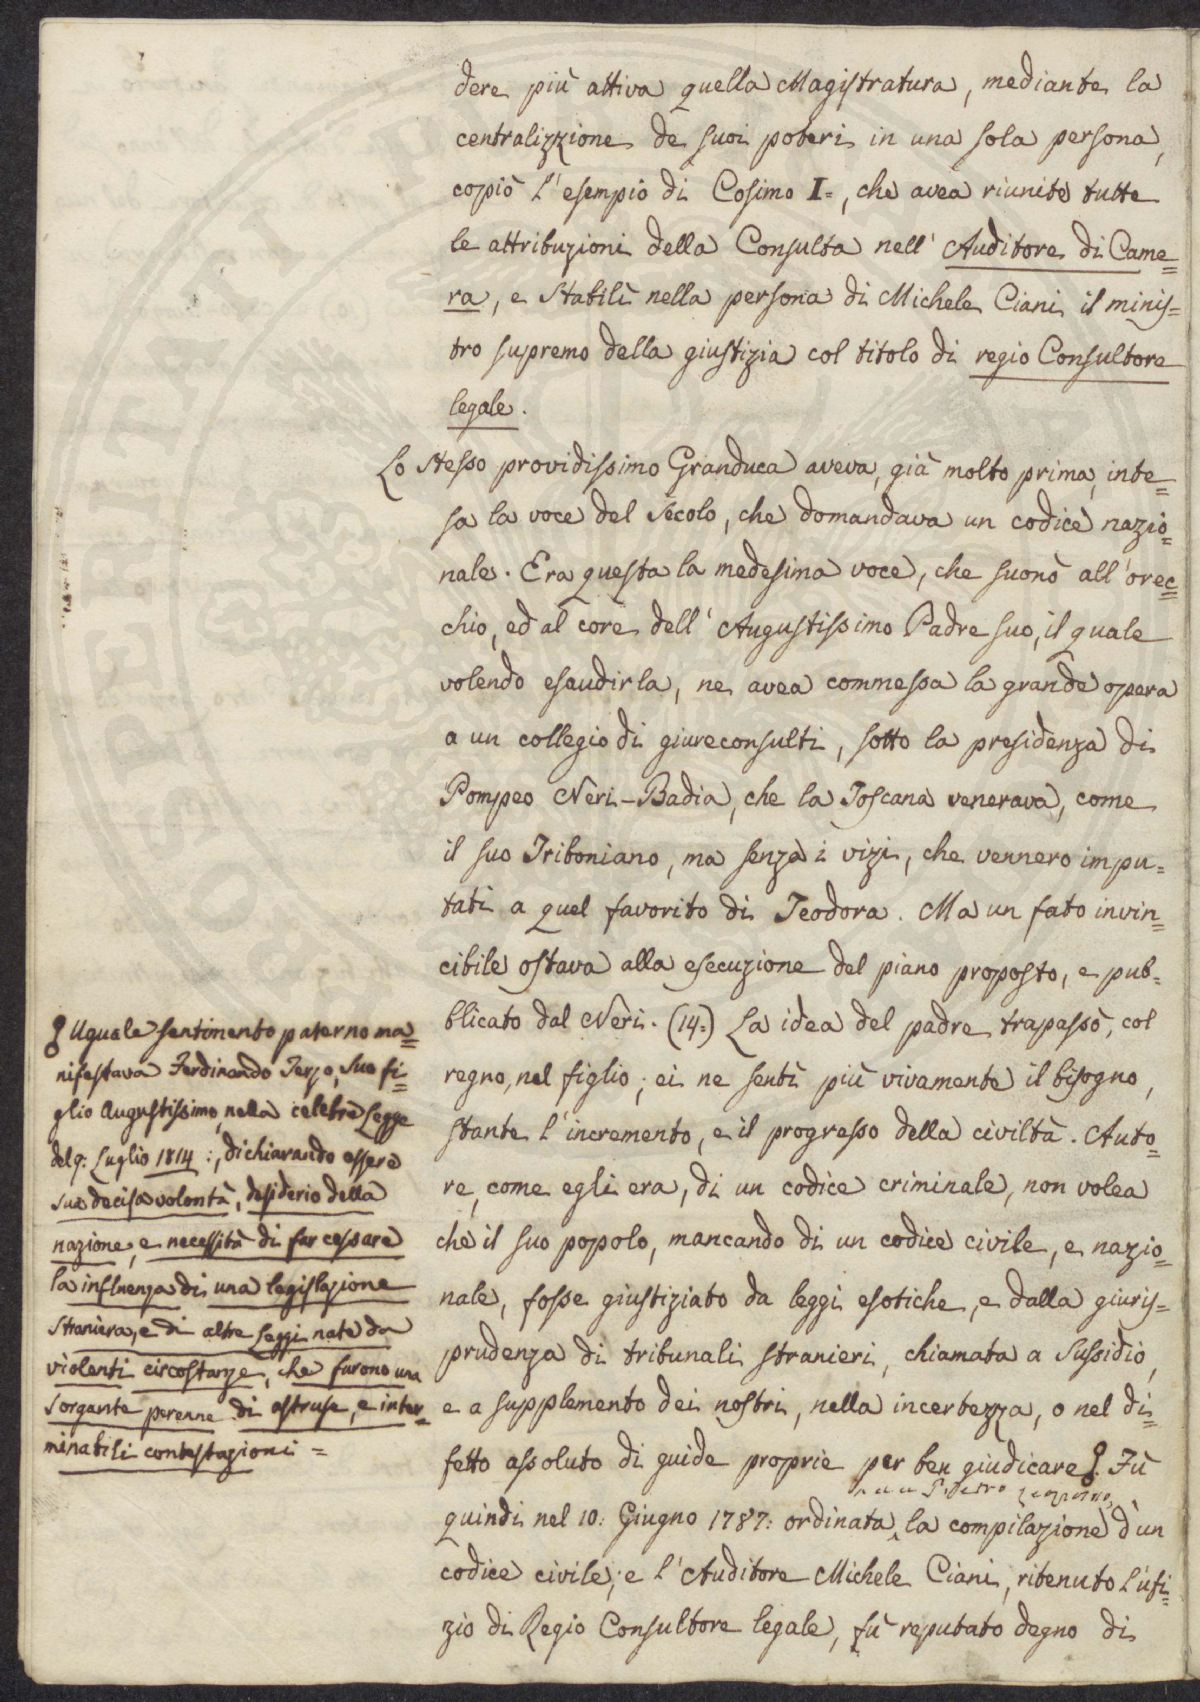 dere più attiva quella Magistratura, mediante la
centralizzione de suoi poteri in una sola persona,
copiò l'esempio di Cosimo I=, che avea riunite tutte
le attribuzioni della Consulta nell'Auditore di Came=
ra, e stabilì nella persona di Michele Ciani il minis=
tro supremo della giustizia col titolo di regio Consultore
legale.
Lo stesso providissimo Granduca aveva, già molto prima, inte=
sa la voce del secolo, che domandava un codice nazio=
nale. Era questa la medesima voce, che suonò all'orec=
chio, ed al core dell'Augustissimo Padre suo, il quale
volendo esaudirla, ne avea commessa la grande opera
a un collegio di giureconsulti, sotto la presidenza di
Pompeo Neri-Badia, che la Toscana venerava, come
il suo Triboniano, ma senza i vizi, che vennero impu=
tati a quel favorito di Teodora. Ma un fato invin=
cibile ostava alla esecuzione del piano proposto, e pub=
blicato dal Neri. (14=) La idea del padre trapassò, col
regno, nel figlio; ei ne sentì più vivamente il bisogno,
stante l'incremento, e il progresso della civiltà. Auto=
re, come egli era, di un codice criminale, non volea
che il suo popolo, mancando di un codice civile, e nazio=
nale, fosse giustiziato da leggi esotiche, e dalla giuris=
prudenza di tribunali stranieri, chiamata a sussidio,
e a supplemento dei nostri, nella incertezza, o nel di=
fetto assoluto di guide proprie per ben giudicare. Fù
quindi nel 10: Giugno 1787: ordinata la compilazione d'un
codice civile; e l'Auditore Michele Ciani, ritenuto l'ufi=
zio di Regio Consultore legale, fù reputato degno di
Uguale sentimento paterno ma=
nifestava Ferdinando Terzo, suo fi=
glio Augustissimo, nella celebre Legge
del 9: Luglio 1814:, dichiarando essere
sua decisa volontà, desiderio della
nazione, e necessità di far cessare
la influenza di una legislazione
straniera, e di altre Leggi nate da
violenti circostanze, che furono una
sorgente perenne di astruse, e inter=
minabili contestazioni =